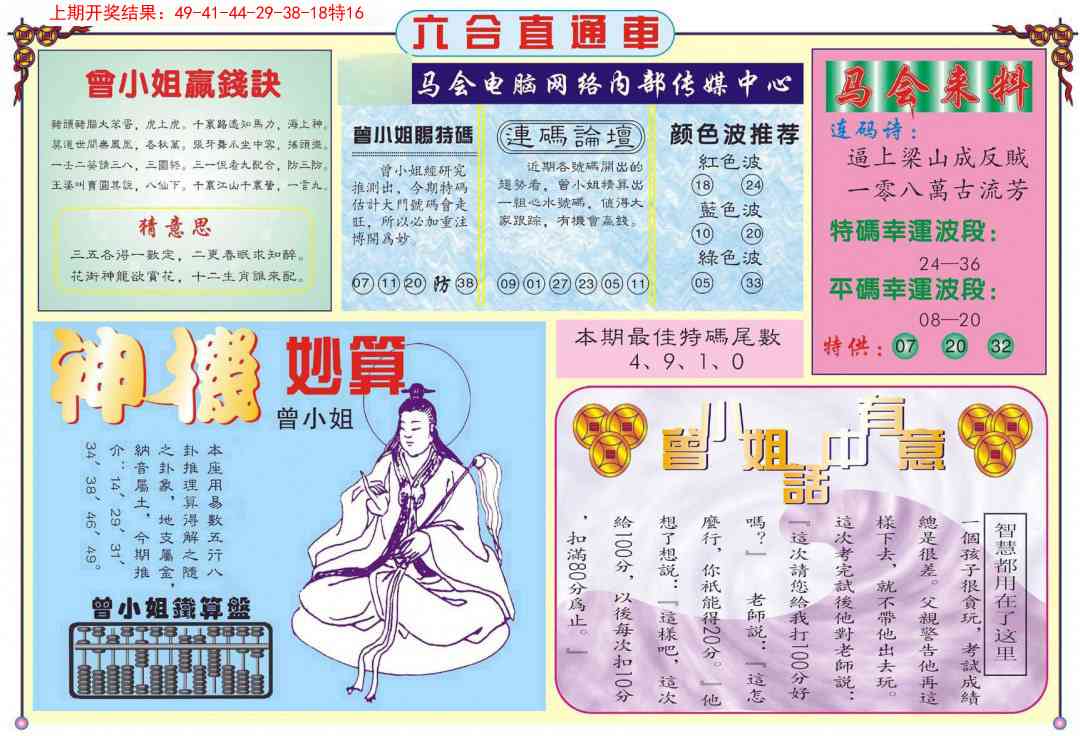 上期开奖结果：49-41-44-29-38-18特16
六合直通車
马会电脑网络内部传媒中心
曾小姐贏錢訣
豬頭豬腦大笨蛋，虎上虎。千裏路遙知馬力，海上神。
莫道世間無鳳凰，各秋萬。張牙舞爪坐中客，
一壬二癸請三八，三園終。三一恒看大配合，防三防。
王婆叫賣圓其說，八仙下。千裏江山千裏營，一言九。
猜意思
三五各得一數定，二更春眠求知醉。
花術神龍欲賞花，十二生肖誰來配。
曾小姐賜特碼
曾小姐經研究
推測出，今期特码
估計大門號碼會走
旺，所以必加重注
博開爲妙
07 11 20 防 38
連碼論壇
近期各號碼開出的
趨勢看，曾小姐精算出
一組心水號碼，值得大
家跟踪，有機會贏錢。
09 01 27 23 05 11
颜色波推荐
紅色波
18 24
藍色波
10 20
綠色波
05 33
马会来料
连码诗：
逼上梁山成反賊
一零八萬古流芳
特碼幸運波段：
24—36
平碼幸運波段：
08—20
特供：07 20 32
神機妙算
曾小姐
本座用易數五行八
卦推理算得解之隨
之卦象，地支屬金，
納音屬土，今期推
介：14、29、31、
34、38、46、49。
曾小姐鐵算盤
本期最佳特碼尾數
4、9、1、0
曾小姐話中有意
智慧都用在了这里
一個孩子很貪玩，考試成績
總是很差。父親警告他再這
樣下去，就不帶他出去玩。
這次考完試後他對老師說：
『這次請您給我打100分好
嗎？』 老師説：『這怎
麼行，你衹能得20分。』他
想了想説：『這樣吧，這次
給100分，以後每次扣10分
，扣滿80分爲止。』